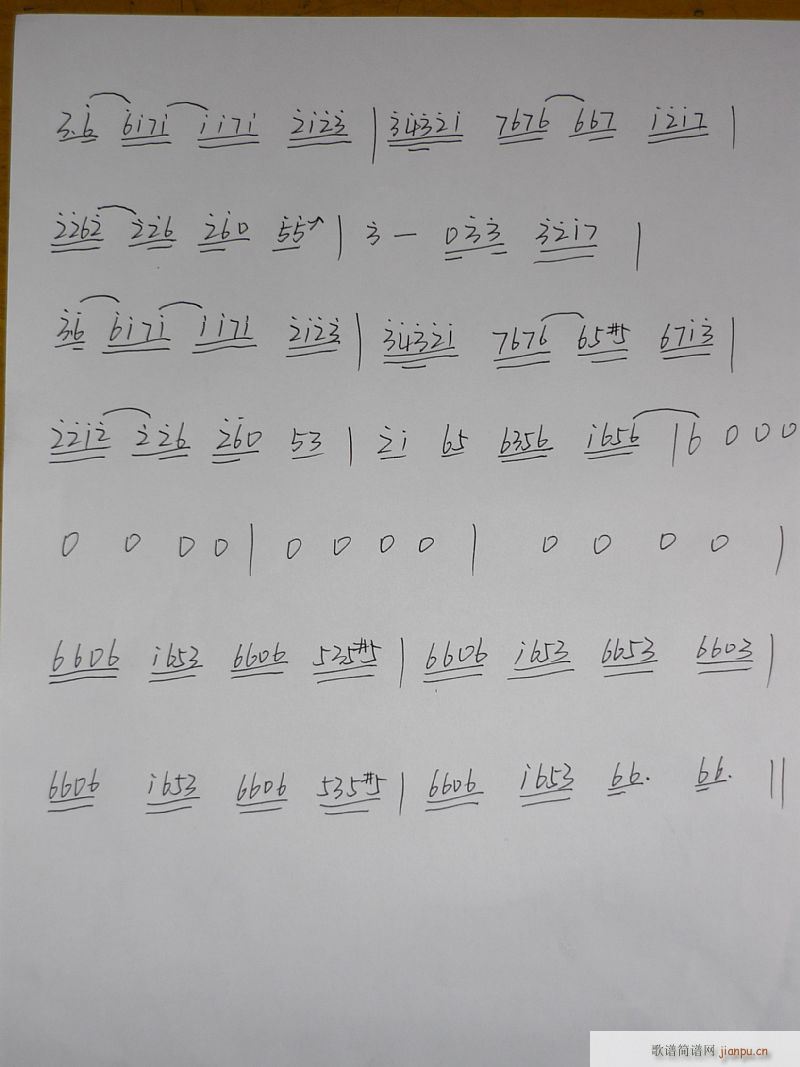 3.6 6i7i ii7i 2i23 | 34321 7676 667 i2i7 |
2262 226 260 55↗ | 3 — 033 32i7 |
36 6i7i ii7i 2i23 | 3432i 7676 65#5 67i3 |
22i2 226 260 53 | 2i 65 6356 i656 | 6 0 0 0
0 0 0 0 | 0 0 0 0 | 0 0 0 0 |
6606 i653 6606 535#5 | 6606 i653 6653 6603 |
6606 i653 6606 535#5 | 6606 i653 66. 66. ||
歌谱简谱网 jianpu.cn